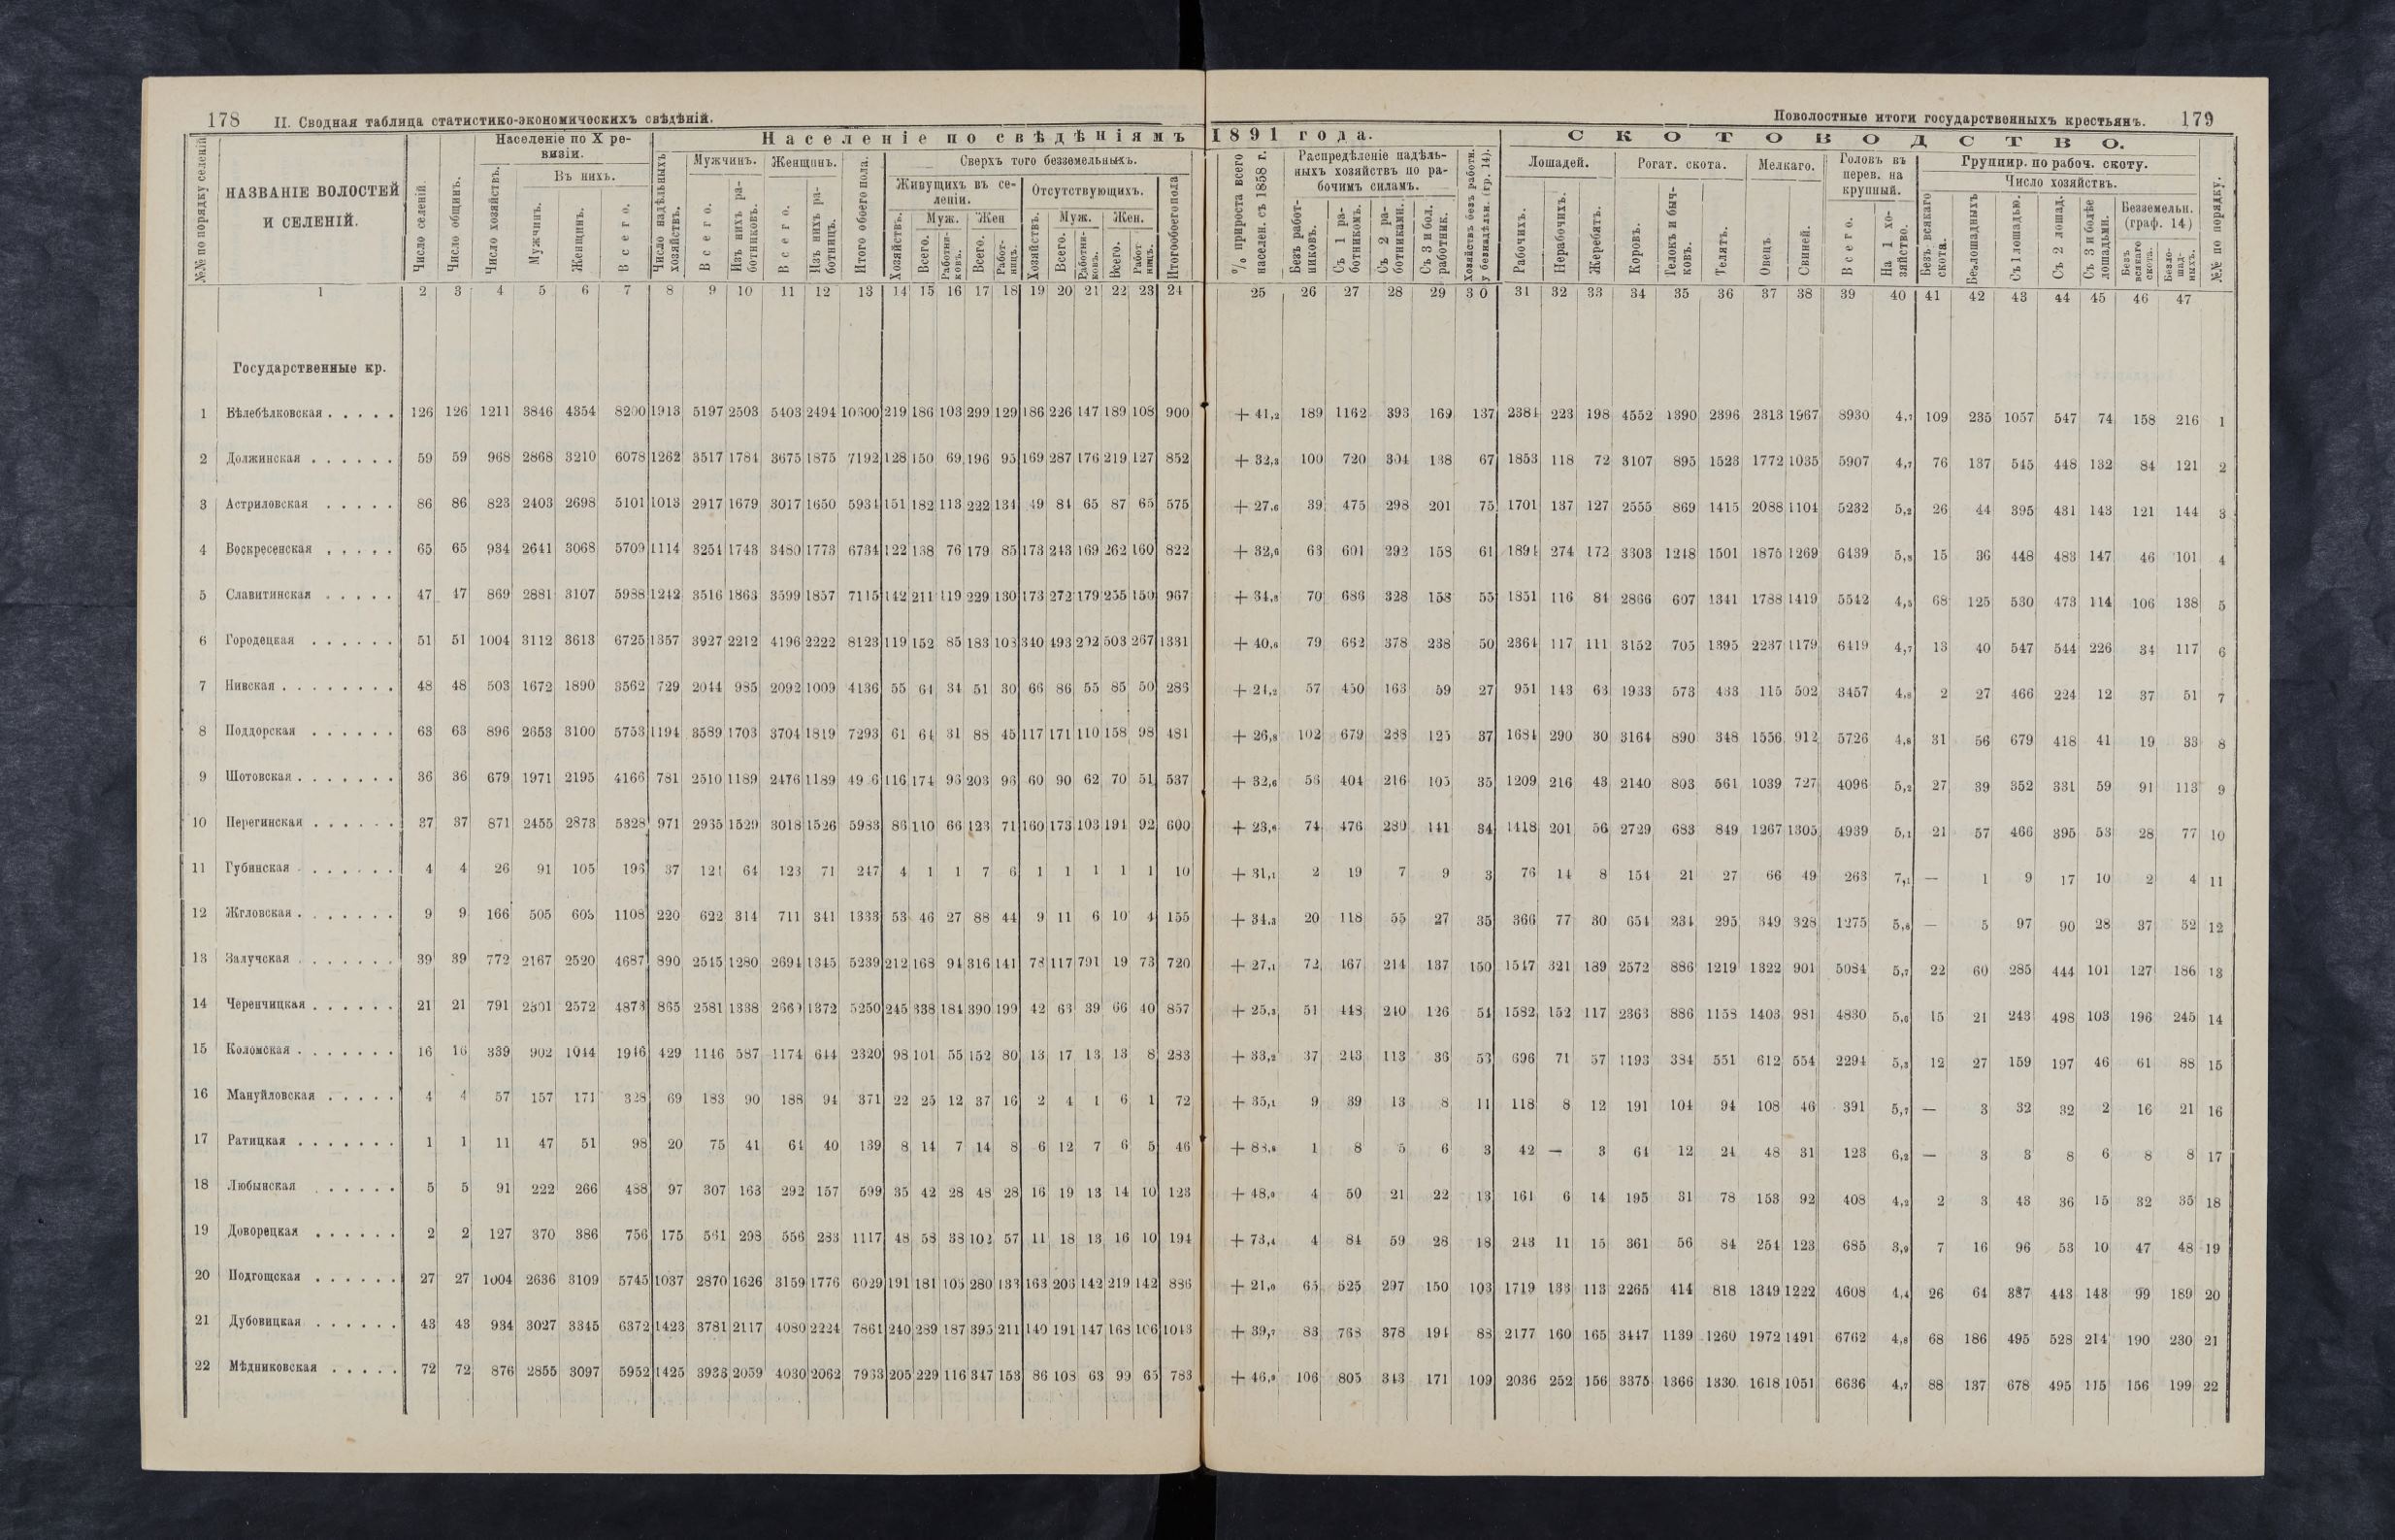 178 II. Сводная таблица статистико-экономическихъ свѣдѣній.
Поволостные итоги государственныхъ крестьянъ. 179
№№ по порядку селеній
НАЗВАНІЕ ВОЛОСТЕЙ И СЕЛЕНІЙ.
Число селеній.
Число общинъ.
Населеніе по X ревизіи.
Число хозяйствъ.
Въ нихъ.
Мужчинъ.
Женщинъ.
Всего.
Населеніе по свѣдѣніямъ 1891 года.
Число надѣльныхъ хозяйствъ.
Мужчинъ.
Всего.
Изъ нихъ работниковъ.
Женщинъ.
Всего.
Изъ нихъ работницъ.
Итого обоего пола.
Сверхъ того безземельныхъ.
Живущихъ въ селеніи.
Хозяйствъ.
Муж.
Всего.
Работниковъ.
Жен
Всего.
Работницъ.
Отсутствующихъ.
Хозяйствъ.
Муж.
Всего.
Работниковъ.
Жен.
Всего.
Работницъ.
Итого обоего пола
% прироста всего населен. съ 1858 г.
Распредѣленіе надѣльныхъ хозяйствъ по рабочимъ силамъ.
Безъ работниковъ.
Съ 1 работникомъ.
Съ 2 работниками.
Съ 3 и бол. работник.
Хозяйствъ безъ работн. у безнадѣльн. (гр. 14).
СКОТОВОДСТВО.
Лошадей.
Рабочихъ.
Нерабочихъ.
Жеребятъ.
Рогат. скота.
Коровъ.
Телокъ и бычковъ.
Телятъ.
Мелкаго.
Овецъ
Свиней.
Головъ въ перев. на крупный.
Всего.
На 1 хозяйство.
Группир. по рабоч. скоту.
Число хозяйствъ.
Безъ всякаго скота.
Безлошадныхъ
Съ 1 лошадью.
Съ 2 лошад.
Съ 3 и болѣе лошадьми.
Безземельн. (граф. 14)
Безъ всякаго скота.
Безлошадныхъ.
№№ по порядку.
1 2 3 4 5 6 7 8 9 10 11 12 13 14 15 16 17 18 19 20 21 22 23 24 25 26 27 28 29 30 31 32 33 34 35 36 37 38 39 40 41 42 43 44 45 46 47
Государственные кр.
1 Бѣлебѣлковская 126 126 1211 3846 4354 8200 1913 5197 2503 5403 2494 10600 219 186 103 299 129 186 226 147 189 108 900 + 41,2 189 1162 393 169 137 2384 223 198 4552 1390 2396 2313 1967 8930 4,7 109 235 1057 547 74 158 216 1
2 Должинская 59 59 968 2868 3210 6078 1262 3517 1784 3675 1875 7192 128 150 69 196 95 169 287 176 219 127 852 + 32,3 100 720 304 138 67 1853 118 72 3107 895 1523 1772 1035 5907 4,7 76 137 545 448 132 84 121 2
3 Астриловская 86 86 823 2403 2698 5101 1013 2917 1679 3017 1650 5934 151 182 113 222 134 49 84 65 87 65 575 + 27,6 39 475 298 201 75 1701 137 127 2555 869 1415 2088 1104 5232 5,2 26 44 395 431 143 121 144 3
4 Воскресенская 65 65 934 2641 3068 5709 1114 3254 1743 3480 1773 6734 122 138 76 179 85 173 243 169 262 160 822 + 32,6 63 601 292 158 61 1894 274 172 3303 1248 1501 1876 1269 6439 5,8 15 36 448 483 147 46 101 4
5 Славитинская 47 47 869 2881 3107 5988 1242 3516 1863 3599 1857 7115 142 211 119 229 130 173 272 179 255 150 967 + 34,8 70 686 328 158 55 1851 116 84 2866 607 1341 1788 1419 5542 4,5 68 125 530 473 114 106 138 5
6 Городецкая 51 51 1004 3112 3613 6725 1357 3927 2212 4196 2222 8123 119 152 85 183 103 340 493 292 503 267 1331 + 40,6 79 662 378 238 50 2364 117 111 3152 705 1395 2237 1179 6419 4,7 13 40 547 544 226 34 117 6
7 Нивская 48 48 503 1672 1890 3562 729 2044 985 2092 1009 4136 55 64 34 51 30 66 86 55 85 50 286 + 24,2 57 450 163 59 27 951 143 63 1933 573 433 115 502 3457 4,8 2 27 466 224 12 37 51 7
8 Поддорская 63 63 896 2653 3100 5753 1194 3589 1703 3704 1819 7293 61 64 31 88 45 117 171 110 158 98 481 + 26,8 102 679 288 125 37 1684 290 30 3164 890 348 1556 912 5726 4,8 31 56 679 418 41 19 33 8
9 Шотовская 36 36 679 1971 2195 4166 781 2510 1189 2476 1189 49 6 116 174 96 203 96 60 90 62 70 51 537 + 32,6 56 404 216 105 35 1209 216 43 2140 803 561 1039 727 4096 5,2 27 39 352 331 59 91 113 9
10 Перегинская 37 37 871 2455 2873 5328 971 2935 1529 3018 1526 5983 86 110 66 123 71 160 173 103 191 92 600 + 23,6 74 476 280 141 34 1418 201 56 2729 683 849 1267 1305 4939 5,1 21 57 466 395 53 28 77 10
11 Губинская 4 4 26 91 105 196 37 124 64 123 71 247 4 1 1 7 6 1 1 1 1 1 10 + 31,1 2 19 7 9 3 76 14 8 154 21 27 66 49 263 7,1 — 1 9 17 10 2 4 11
12 Жгловская 9 9 166 505 603 1108 220 622 314 711 341 1333 53 46 27 88 44 9 11 6 10 4 155 + 34,3 20 118 55 27 35 366 77 30 654 234 295 349 328 1275 5,8 — 5 97 90 28 37 52 12
13 Залучская 39 39 772 2167 2520 4687 890 2545 1280 2694 1345 5239 212 168 94 316 141 78 117 791 19 73 720 + 27,1 72 467 214 137 150 1547 321 189 2572 886 1219 1322 901 5084 5,7 22 60 285 444 101 127 186 13
14 Черенчицкая 21 21 791 2301 2572 4873 865 2581 1338 2669 1372 5250 245 338 184 390 199 42 63 39 66 40 857 + 25,3 51 448 240 126 54 1582 152 117 2363 886 1158 1403 981 4830 5,6 15 21 243 498 103 196 245 14
15 Коломская 16 16 339 902 1044 1946 429 1146 587 1174 644 2320 98 101 55 152 80 13 17 13 13 8 283 + 33,2 37 243 113 36 53 696 71 57 1193 384 551 612 554 2294 5,3 12 27 159 197 46 61 88 15
16 Мануйловская 4 4 57 157 171 328 69 183 90 188 94 371 22 25 12 37 16 2 4 1 6 1 72 + 35,1 9 39 13 8 11 118 8 12 191 104 94 108 46 391 5,7 — 3 32 32 2 16 21 16
17 Ратицкая 1 1 11 47 51 98 20 75 41 64 40 139 8 14 7 14 8 6 12 7 6 5 46 + 88,8 1 8 5 6 3 42 — 3 64 12 24 48 31 123 6,2 — 3 3 8 6 8 8 17
18 Любынская 5 5 91 222 266 488 97 307 163 292 157 599 35 42 28 48 28 16 19 13 14 10 123 + 48,0 4 50 21 22 13 161 6 14 195 31 78 153 92 408 4,2 2 3 43 36 15 32 35 18
19 Доворецкая 2 2 127 370 386 756 175 561 298 556 283 1117 48 58 38 102 57 11 18 13 16 10 194 + 73,4 4 84 59 28 18 243 11 15 361 56 84 254 123 685 3,9 7 16 96 53 10 47 48 19
20 Подгощская 27 27 1004 2636 3109 5745 1037 2870 1626 3159 1776 6029 191 181 105 280 133 163 206 142 219 142 886 + 21,0 65 525 297 150 103 1719 133 113 2265 414 818 1349 1222 4608 4,4 26 64 387 443 143 99 189 20
21 Дубовицкая 43 43 934 3027 3345 6372 1423 3781 2117 4080 2224 7861 240 289 187 395 211 140 191 147 168 106 1043 + 39,7 83 768 378 194 88 2177 160 165 3447 1139 1260 1972 1491 6762 4,8 68 186 495 528 214 190 230 21
22 Мѣдниковская 72 72 876 2855 3097 5952 1425 3933 2059 4030 2062 7963 205 229 116 347 153 86 108 63 99 65 783 + 46,9 106 805 343 171 109 2036 252 156 3375 1366 1330 1618 1051 6636 4,7 88 137 678 495 115 156 199 22